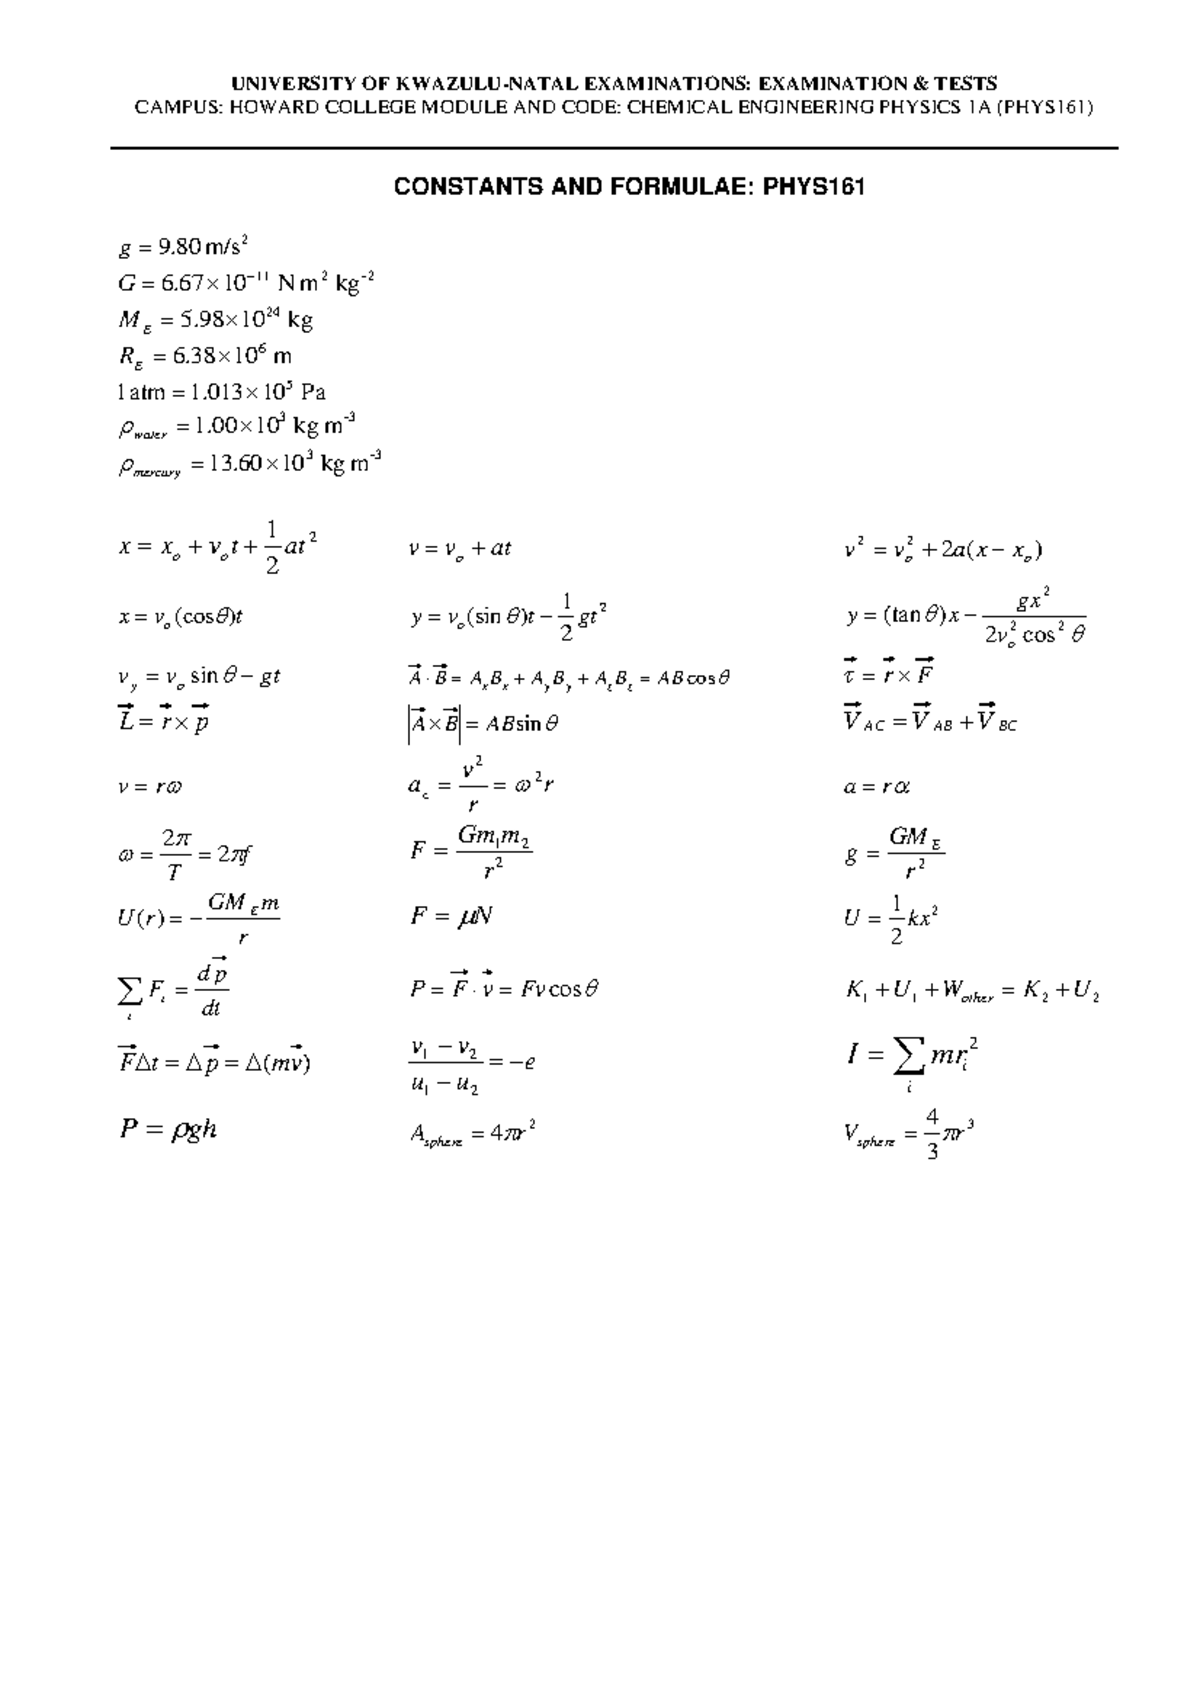 UNIVERSITY OF KWAZULU-NATAL EXAMINATIONS: EXAMINATION & TESTS
CAMPUS: HOWARD COLLEGE MODULE AND CODE: CHEMICAL ENGINEERING PHYSICS 1A (PHYS161)
CONSTANTS AND FORMULAE: PHYS161
g = 9.80 m/s²
G = 6.67 × 10⁻¹¹ N m² kg⁻²
M_E = 5.98 × 10²⁴ kg
R_E = 6.38 × 10⁶ m
1 atm = 1.013 × 10⁵ Pa
ρ_water = 1.00 × 10³ kg m⁻³
ρ_mercury = 13.60 × 10³ kg m⁻³
x = x_o + v_o t + 1/2 at² v = v_o + at v² = v_o² + 2a(x − x_o)
x = v_o (cos θ)t y = v_o (sin θ)t − 1/2 gt² y = (tan θ)x − gx² / 2v_o² cos² θ
v_y = v_o sin θ − gt A⃗ · B⃗ = A_x B_x + A_y B_y + A_z B_z = AB cos θ τ⃗ = r⃗ × F⃗
L⃗ = r⃗ × p⃗ |A⃗ × B⃗| = AB sin θ V⃗_AC = V⃗_AB + V⃗_BC
v = rω a_c = v²/r = ω² r a = rα
ω = 2π/T = 2πf F = Gm₁m₂/r² g = GM_E/r²
U(r) = − GM_E m/r F = μN U = 1/2 kx²
∑_i F_i = dp⃗/dt P = F⃗ · v⃗ = Fv cos θ K₁ + U₁ + W_other = K₂ + U₂
F⃗Δt = Δp⃗ = Δ(mv⃗) v₁ − v₂ / u₁ − u₂ = −e I = ∑_i mr_i²
P = ρgh A_sphere = 4πr² V_sphere = 4/3 πr³